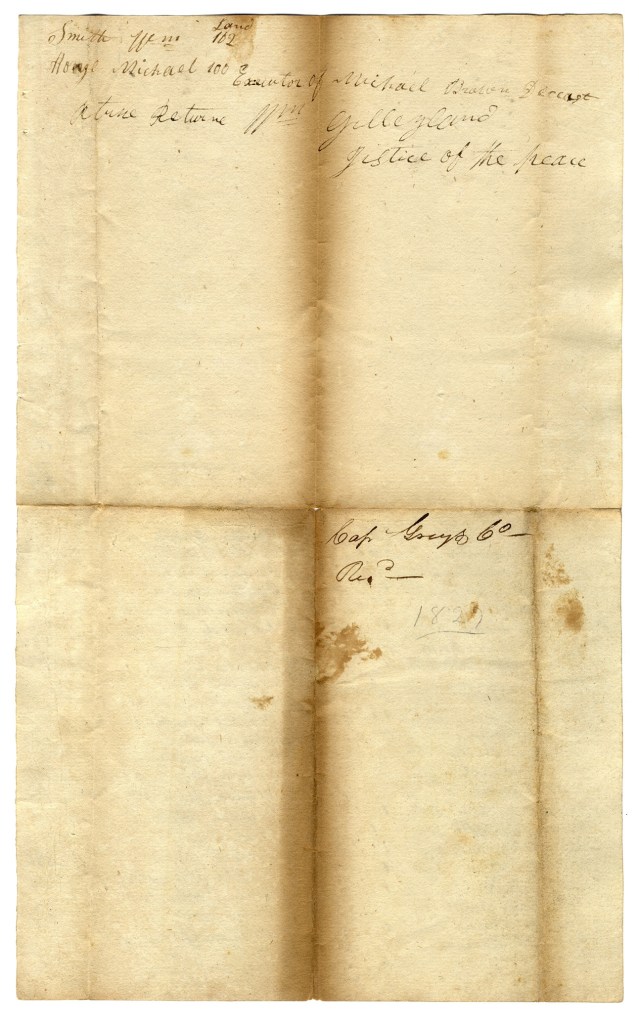 Land
Smith Wm 102
Michael 100 Executor of Michael Brown Deceast
A true Returne Wm Gilleyland
Jistice of the peace
Cap. Grays Co
Recd
182